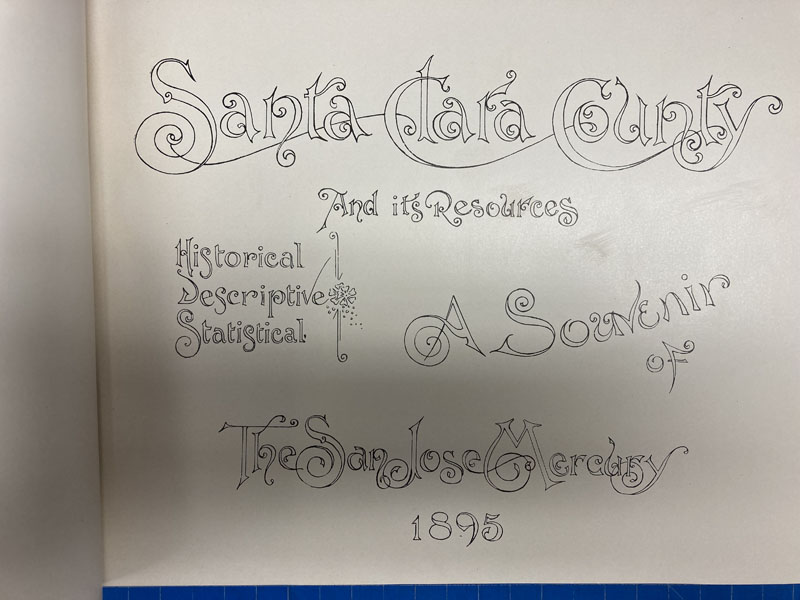 Santa Clara County
And it's Resources
Historical
Descriptive
Statistical
A Souvenir
of
The San Jose Mercury
1895